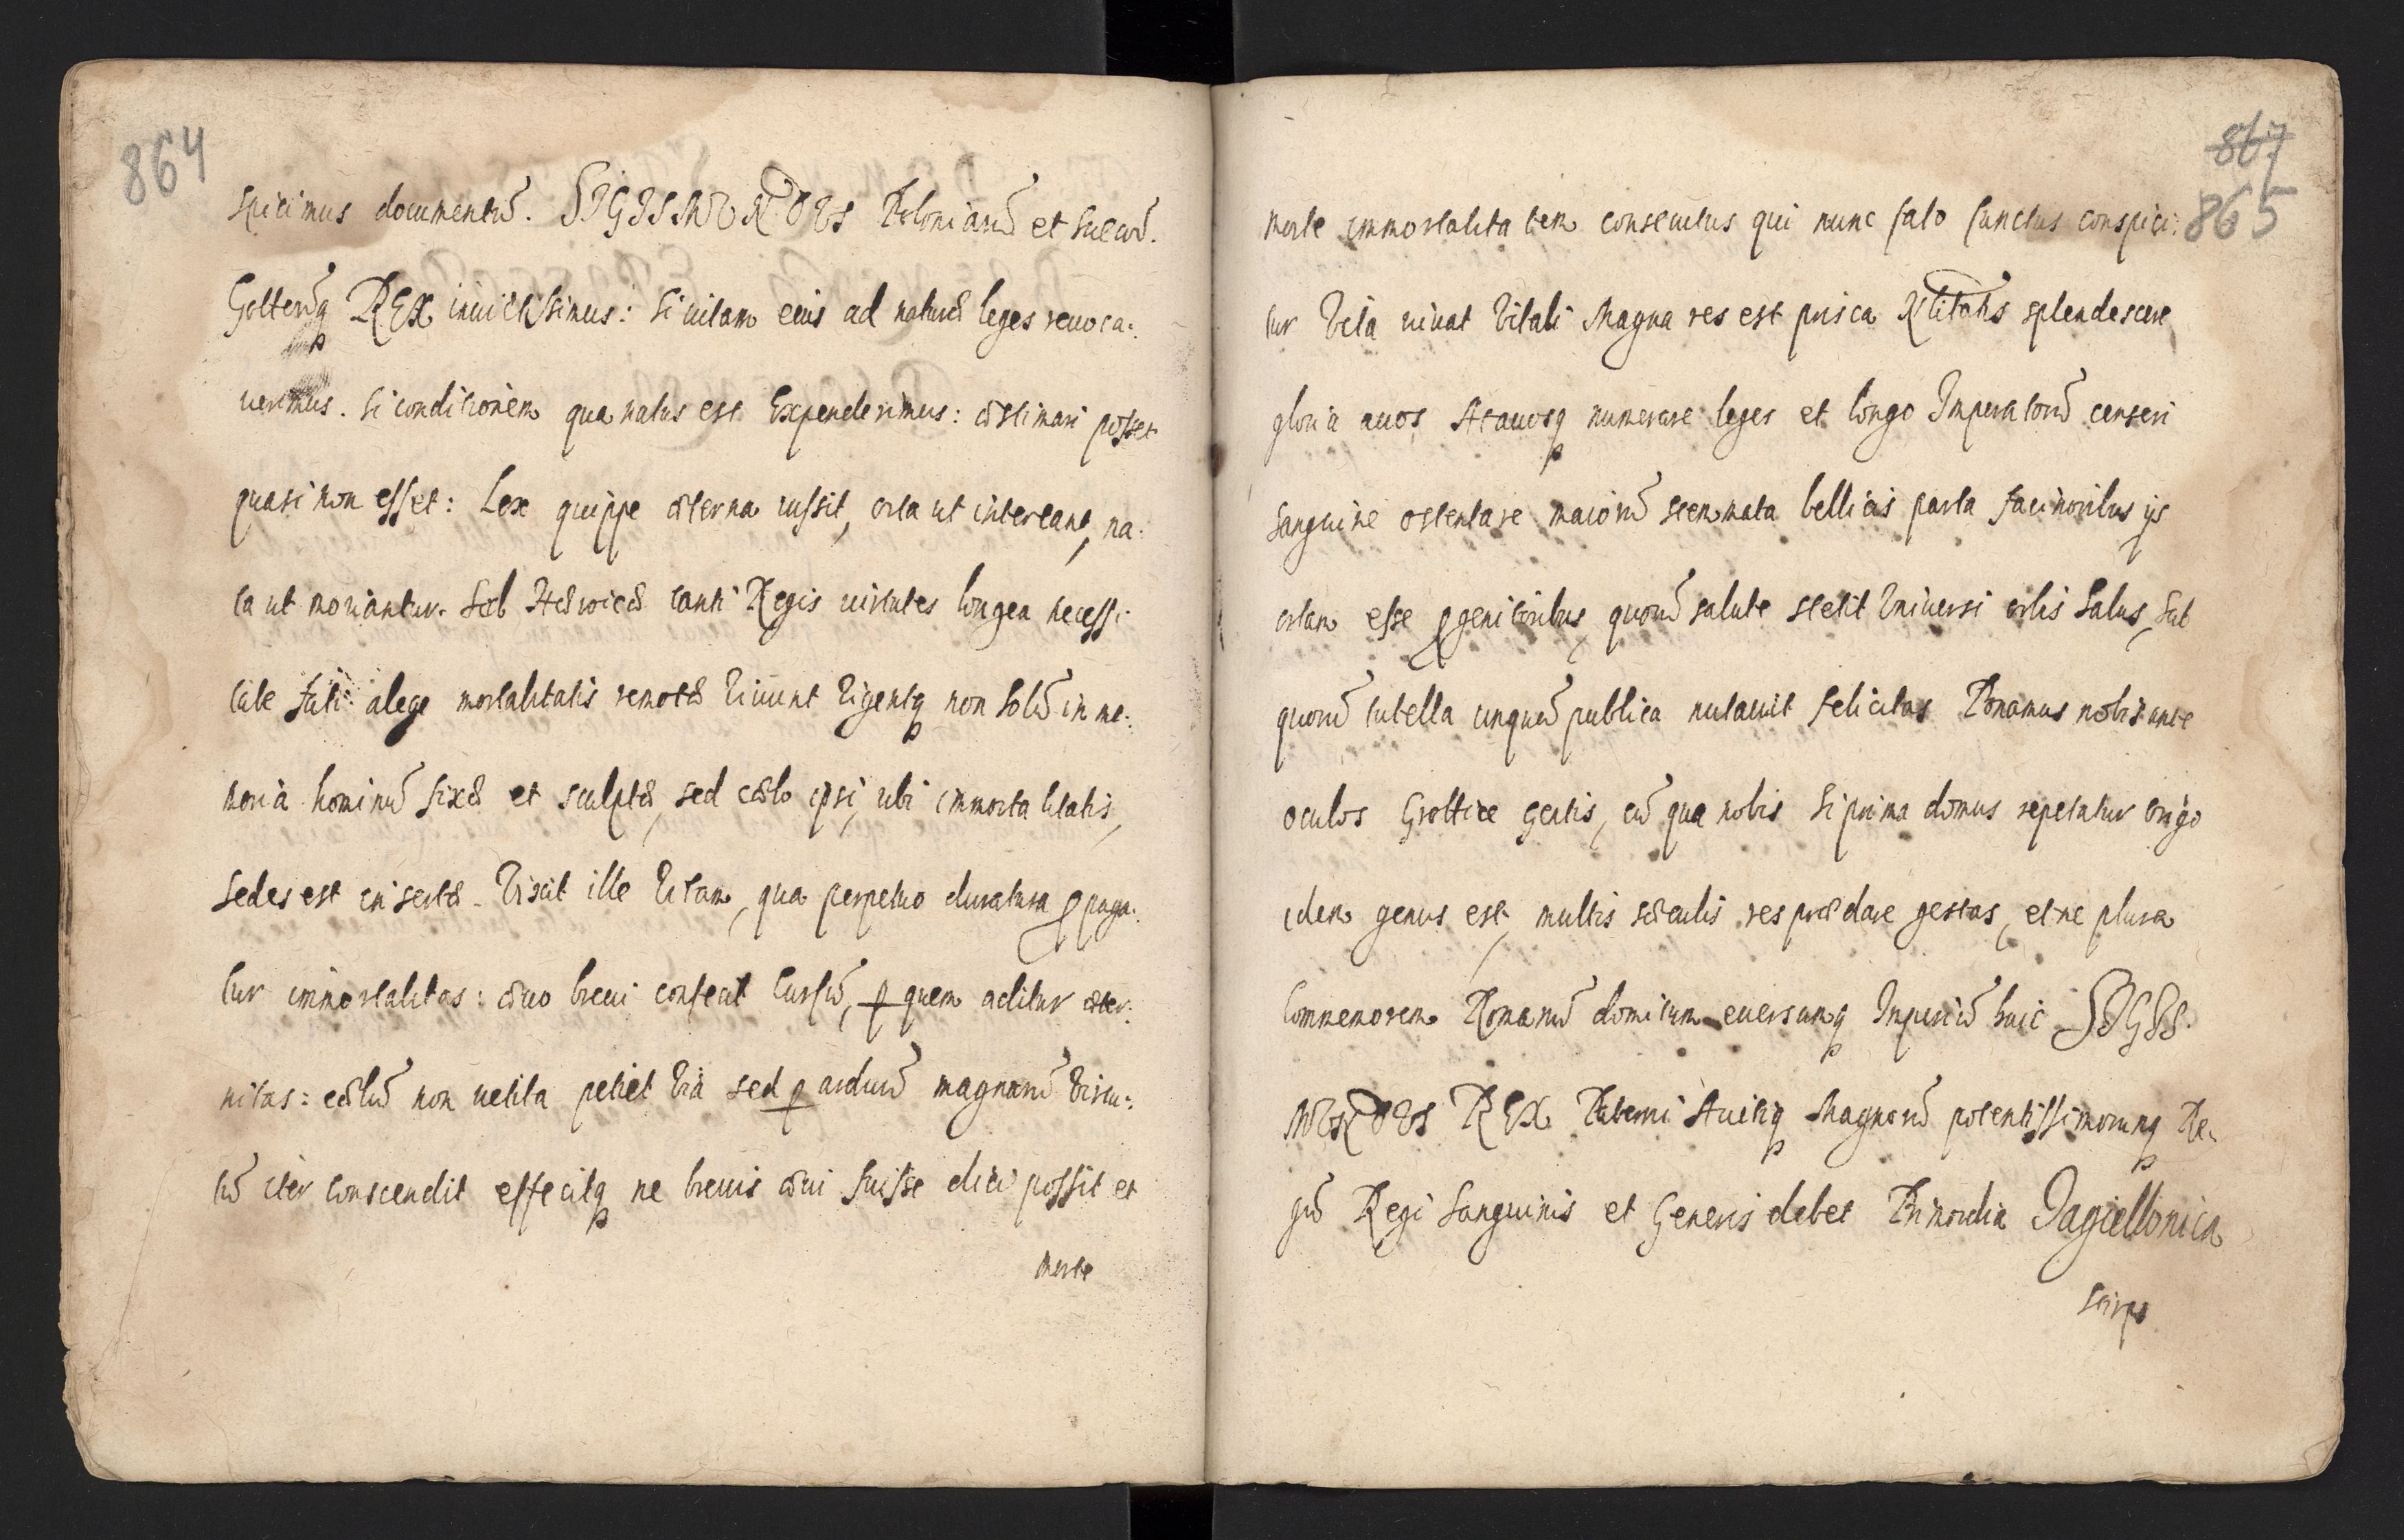 864
spicimus documentū. SIGISMUNDUS Poloniarū et Suecorū.
Gottorūq REX inuictissimus: si uitam eius ad naturæ leges reuoca:
uerimus. si conditionem qua natus est Expenderimus: æstimari posset
quasi non esset: Lex quippe æterna iussit, orta ut intereant, na:
ta ut moriantur. Sed Hæroicæ tanti Regis uirtutes longea necessi:
tate fati: alege mortalitatis remotæ Viuunt Vigentq non solū in me:
moria hominū fixæ et sculptæ, sed cælo ipsi, ubi immortalitatis,
sedes est insertæ. Vixit ille Vitam, qua perpetuo duratura ꝓpaga:
tur immortalitas: æuo breui confecit cursū, ꝑ quem aditur æter:
nitas: cælū non uetita petiet Via sed ꝑ arduū magnarū Virtu:
tū iter conscendit effecitq ne breuis æui fuisse dici possit et
morte
867
865
morte immortalitatem consecutus qui nunc fato functus conspici:
tur Vita uiuat Vitali Magna res est prisca Nlitatis splendescere
gloria auos Atauosq numerare leges et longo Imperatorū censeri
sanguine ostentare maiorū stemmata bellicis parta facinoribus ijs
ortam esse ꝓgenitoribus, quorū salute stetit Vniuersi orbis Salus, sub
quorū tutella unquā publica nutauit felicitas Ponamus nobis ante
oculos Grottice gentis, cū qua nobis si prima domus repetatur origo
idem genus est, multis sæculis res præclare gestas, et ne plura
Commemorem Romanū domitum euersumq Imperiū huic SIGIS.
MUNDUS REX Paterni Auitiq Magnorū potentissimorumq Re:
gū Regi Sanguinis et Generis debet Primordia Jagiellonica
Stirps